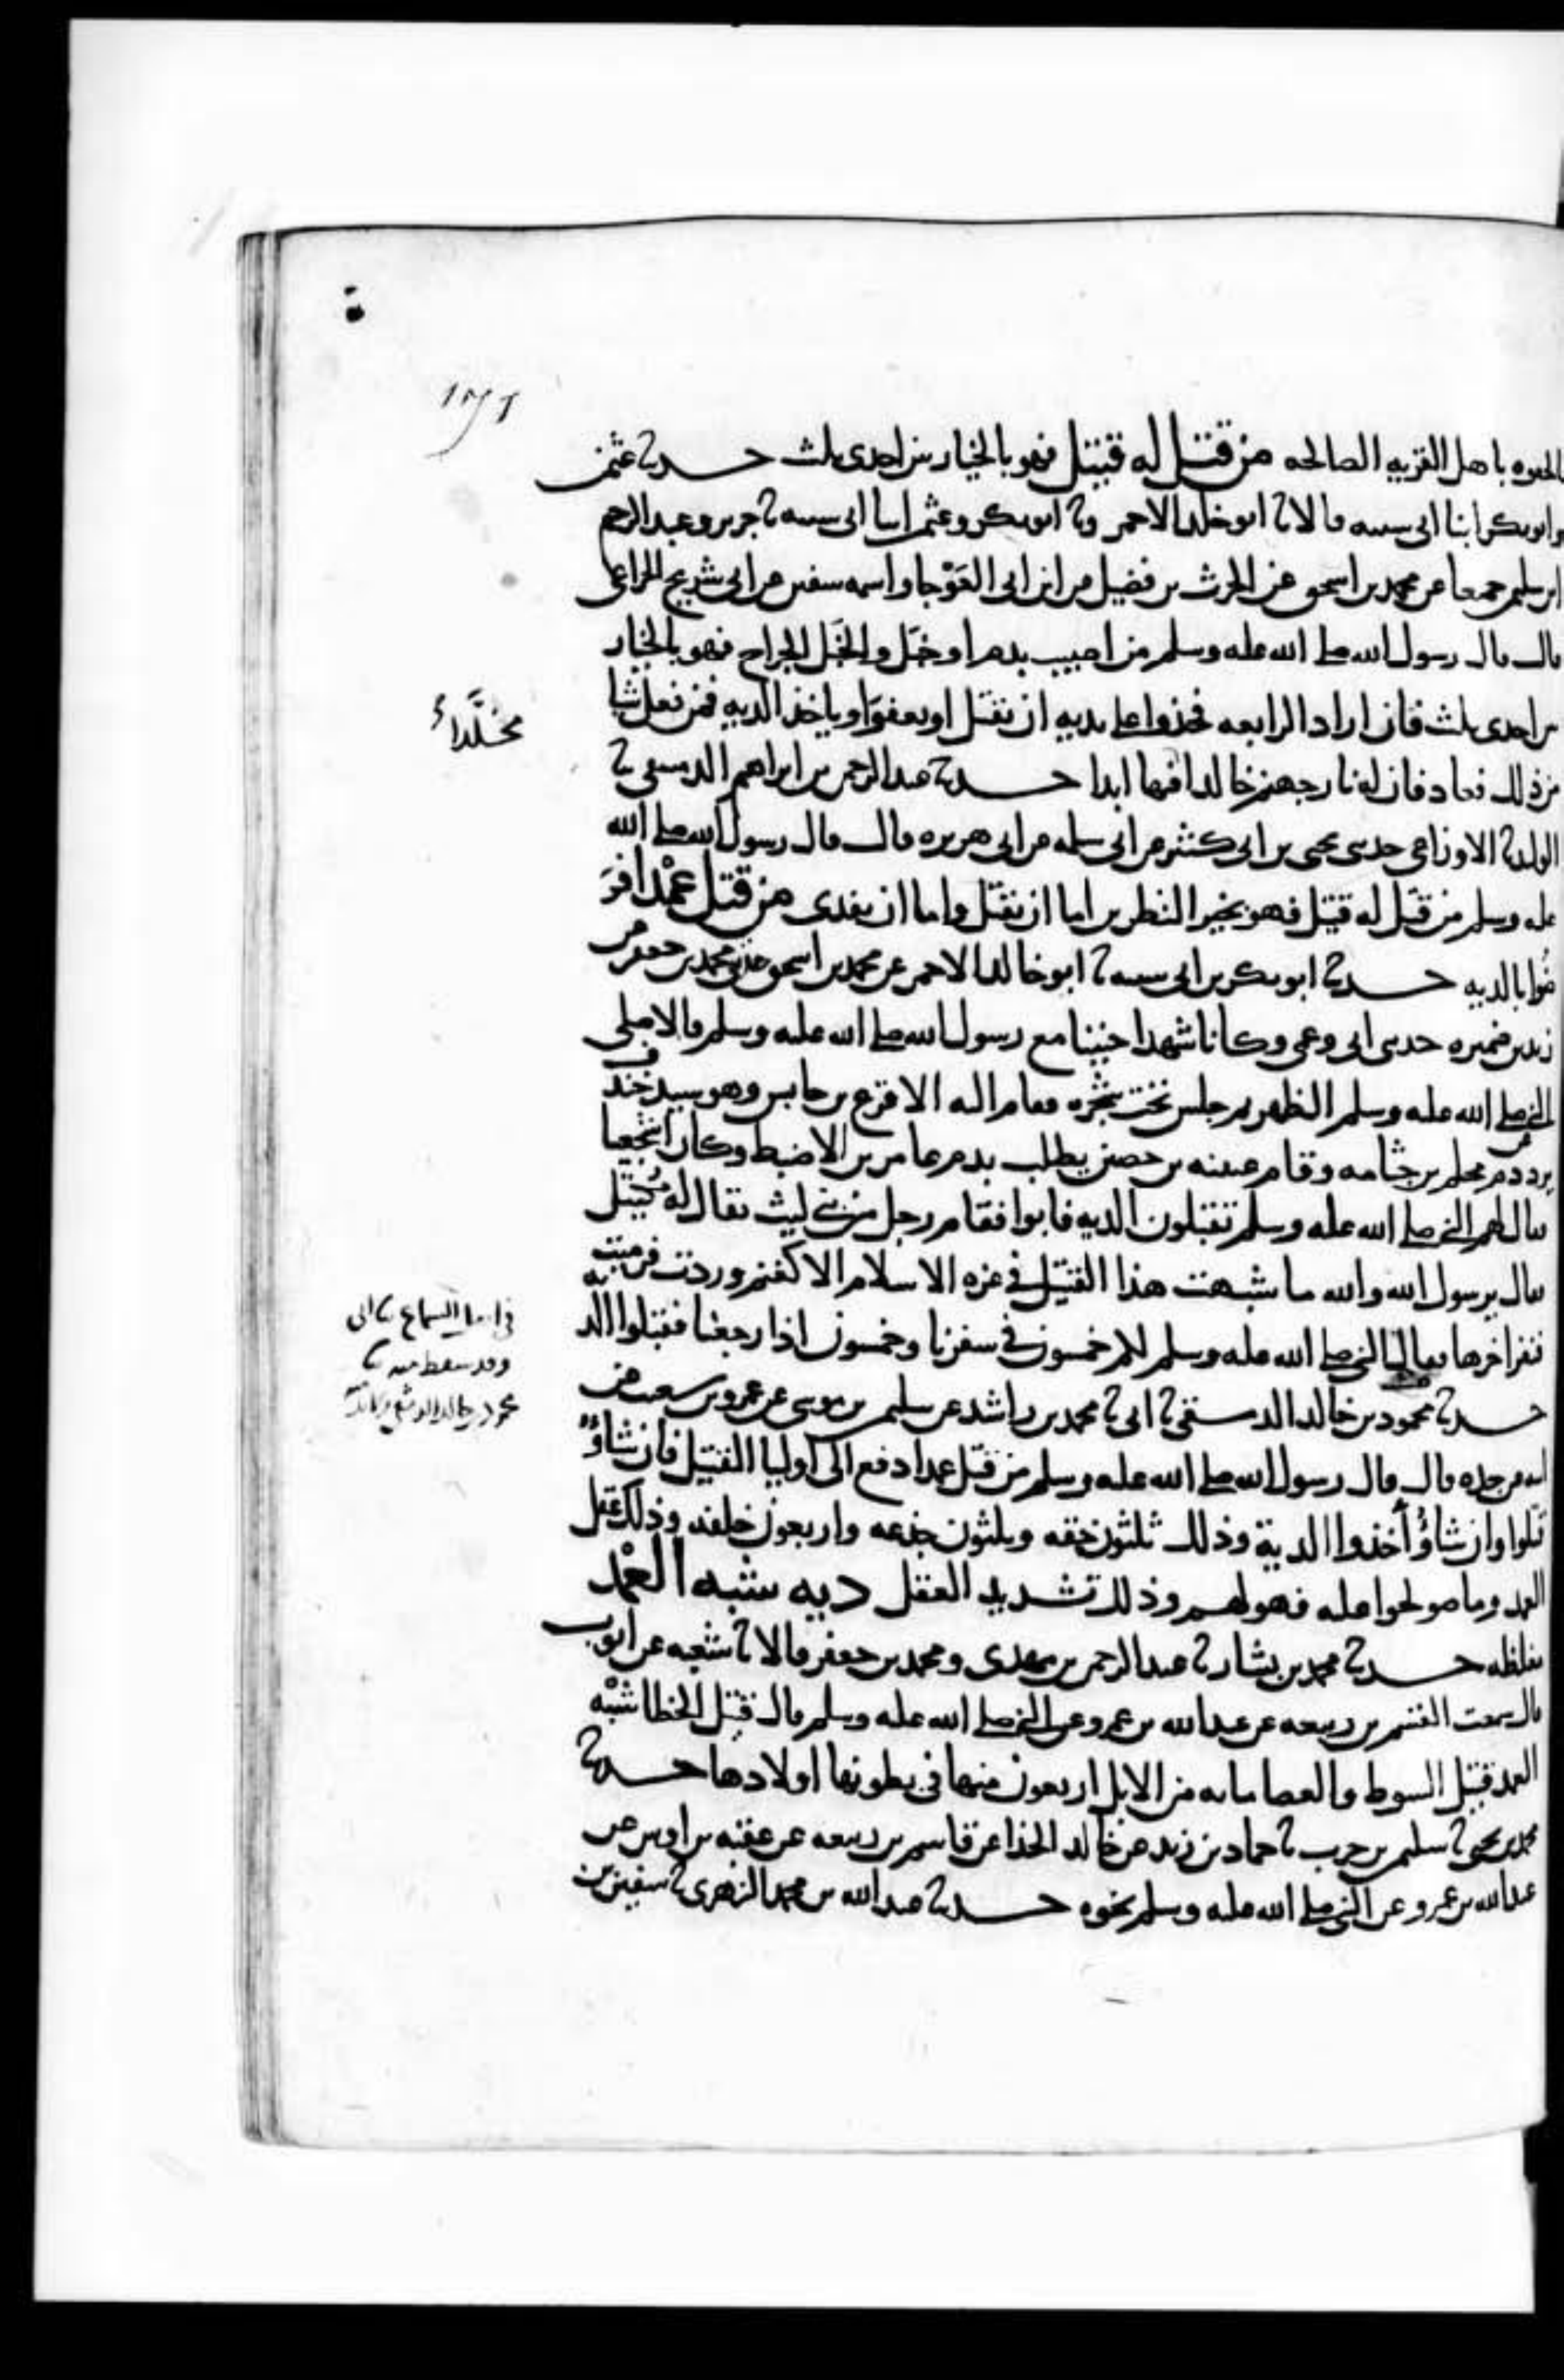 ١٧٢
الحبوه باهل القريه الصالحه من قتل له قتيل فهو بالخيار بين احدى ثلث حدثنا عثمن
وابو بكر ابنا ابى شيبه قالا ثنا ابو خلد الاحمر وثنا ابو بكر وعثمن ابنا ابى شيبه ثنا جرير وعبد الرحيم
ابن سليمن جميعا عن محمد بن اسحق عن الحرث بن فضيل عن ابن ابى العوجا واسمه سفين عن ابى شريح الخزاعى
قال قال رسول الله صلى الله عليه وسلم من اصيب بدم او خبل والخبل الجراح فهو بالخيار
بين احدى ثلث فان اراد الرابعه فخذوا على يديه ان يقتل او يعفوا او ياخذ الديه فمن فعل شيا
من ذلك فعاد فان له نار جهنم خالدا فيها ابدا حدثنا عبد الرحمن بن ابراهيم الدمشقى ثنا
مخلدا
الوليد ثنا الاوزاعى حدثنى يحيى بن ابى كثير عن ابى سلمه عن ابى هريره قال قال رسول الله صلى الله
عليه وسلم من قتل له قتيل فهو بخير النظرين اما ان يقتل واما ان يفدى من قتل عمدا فر
ضوا بالديه حدثنا ابو بكر بن ابى شيبه ثنا ابو خالد الاحمر عن محمد بن اسحق حدثنى محمد بن جعفر عن
زيد بن ضميره حدثنى ابى وعمى وكانا شهدا حنينا مع رسول الله صلى الله عليه وسلم قالا صلى
النبى صلى الله عليه وسلم الظهر ثم جلس تحت شجره فقام اليه الاقرع بن حابس وهو سيد خندف
يرد عن دم محلم بن جثامه وقام عيينه بن حصن يطلب بدم عامر بن الاضبط وكان اشجعيا
فقال لهم النبى صلى الله عليه وسلم تقبلون الديه فابوا فقام رجل من بنى ليث يقال له مكيتل
فقال يرسول الله والله ما شبهت هذا القتيل فى غره الاسلام الا كغنم وردت فرميت
فنفر اخرها فقال النبى صلى الله عليه وسلم لكم خمسون فى سفرنا وخمسون اذا رجعنا فقبلوا الديه
حدثنا محمود بن خالد الدمشقى ثنا ابى ثنا محمد بن راشد عن سليمن بن موسى عن عمرو بن شعيب عن
فى اصل السماع ثنا ابى
وقد سقط منه ثنا
محمود بن خالد الدمشقى
ابيه عن جده قال قال رسول الله صلى الله عليه وسلم من قتل عمدا دفع الى اوليا القتيل فان شاؤا
قتلوا وان شاؤا أخذوا الدية وذلك ثلثون حقه وثلثون جذعه واربعون خلفه وذلك عقل
العمد وما صولحوا عليه فهو لهم وذلك تشديد العقل ديه شبه العمد
مغلظه حدثنا محمد بن بشار ثنا عبد الرحمن بن مهدى ومحمد بن جعفر قالا ثنا شعبه عن ايوب
قال سمعت القسم بن ربيعه عن عبد الله بن عمرو عن النبى صلى الله عليه وسلم قال قتيل الخطا شبه
العمد قتيل السوط والعصا مايه من الابل اربعون منها فى بطونها اولادها حدثنا
محمد بن يحيى ثنا سليمن بن حرب ثنا حماد بن زيد عن خالد الحذا عن قاسم بن ربيعه عن عقبه بن اوس عن
عبد الله بن عمرو عن النبى صلى الله عليه وسلم نحوه حدثنا عبد الله بن محمد الزهرى ثنا سفين بن